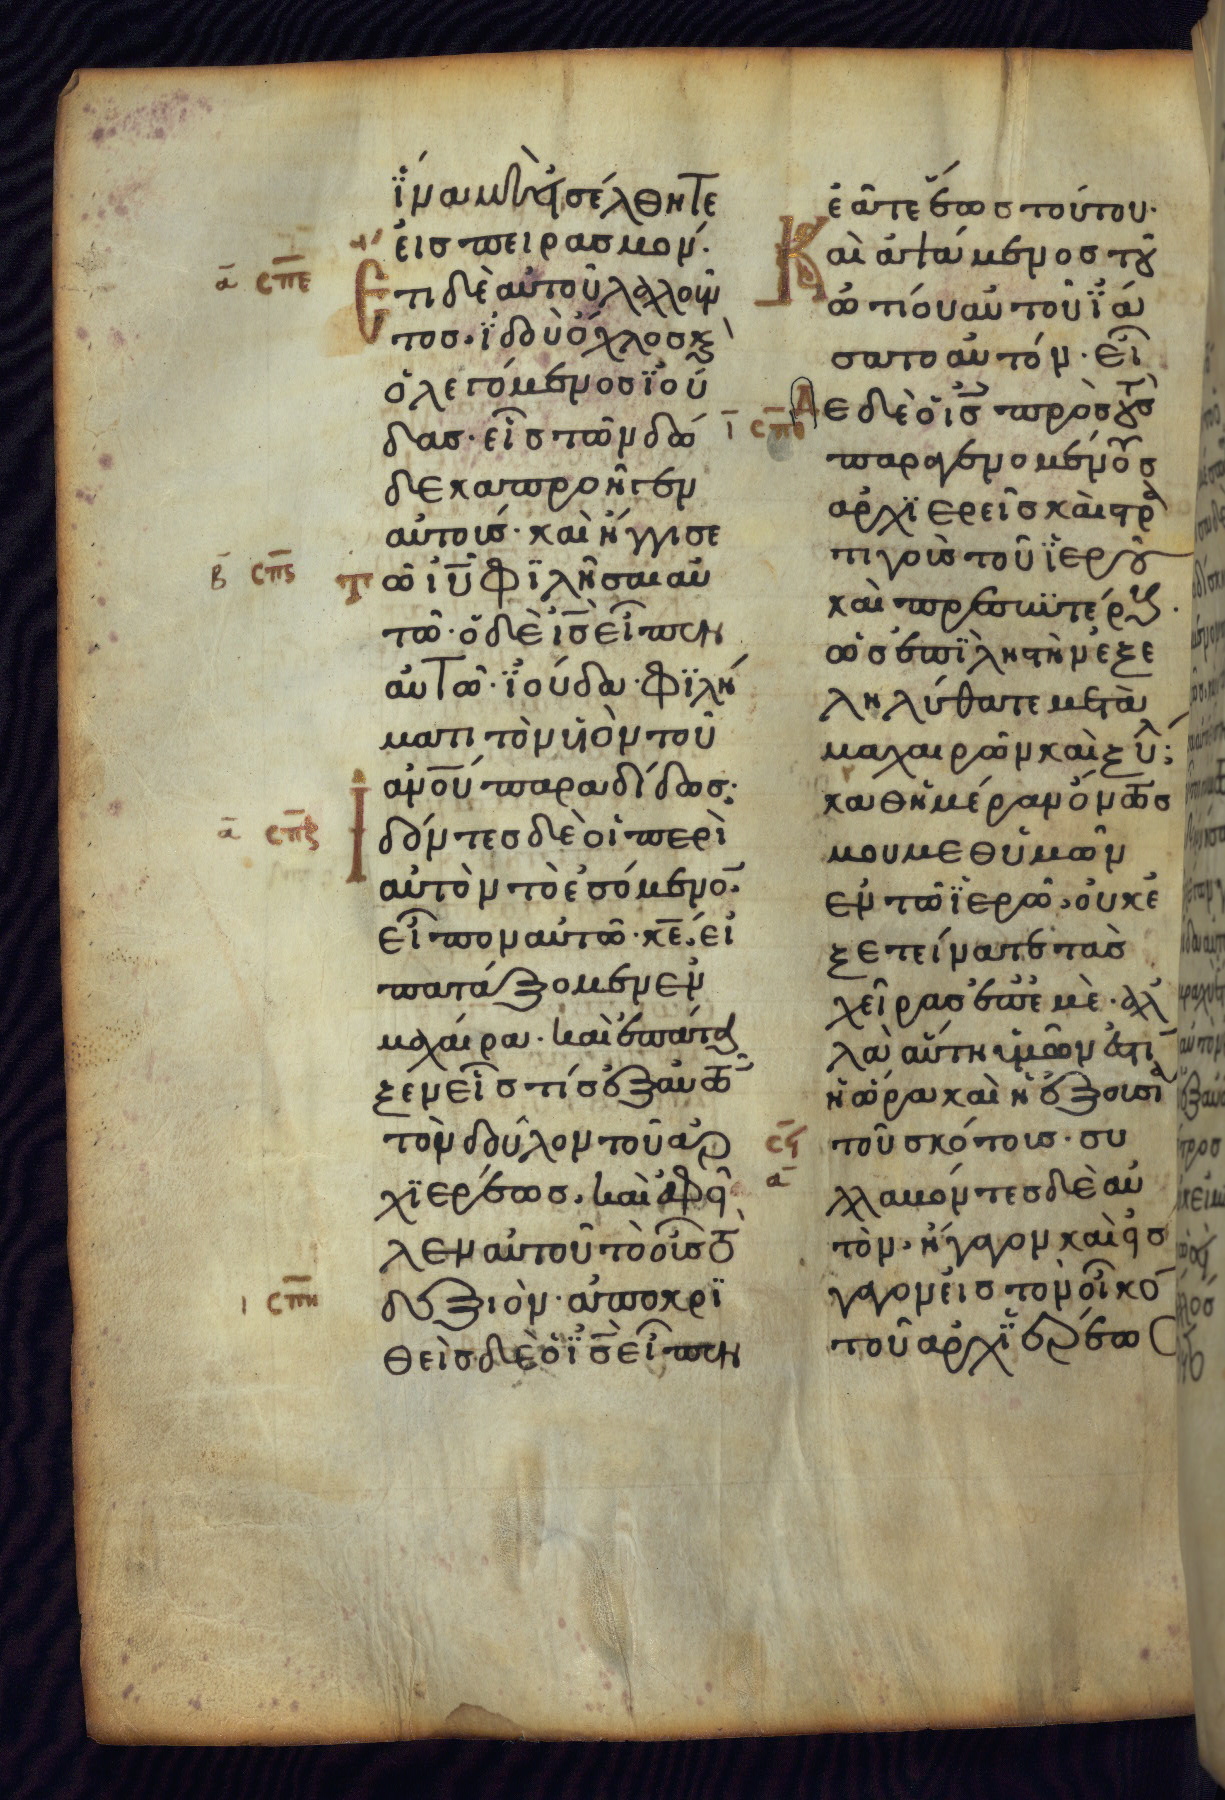 ἵνα μὴ εἰσέλθητε
εἰς πειρασμόν.
ᾱ σ̅π̅ε̅ Ἔτι δὲ αὐτοῦ λαλοῦν
τος. ἰδοὺ ὄχλος κ̀
ὁ λεγόμενος ἰού
δας. εἷς τῶν δώ
δεκα προῆγεν
αὐτοῖς. καὶ ἤγγισε
β̄ σ̅π̅ϛ̅ τῶ ι̅υ̅ φιλῆσαι αὐ
τῶ. ὁ δὲ ι̅σ̅ εἶπεν
αὐτῶ. ἰούδα. φιλή
ματι τὸν υἱὸν τοῦ
α̅ν̅ο̅υ̅ παραδίδως;
ᾱ σ̅π̅ζ̅ Ἰδόντες δὲ οἱ περὶ
αὐτὸν τὸ ἐσόμενο̄.
εἶπον αὐτῶ. κ̅ε̅. εἰ
πατάξομεν ἐν
μαχαίρα. καὶ ἐπάτα
ξεν εἷς τίς ἐξ αὐτῶ̄
τὸν δοῦλον τοῦ ἀρ
χιερέως. καὶ ἀφεῖ
λεν αὐτοῦ τὸ οὖς τὸ
ι σ̅π̅η̅ δεξιόν. ἀποκρι
θεὶς δὲ ὁ ι̅σ̅ εἶπεν
ἐᾶτε ἕως τούτου.
Καὶ ἁψάμενος τοῦ
ὠτίου αὐτοῦ ἰά
σατο αὐτόν. Εἶ
ῑ σ̅π̅θ̅ πε δὲ ὁ ι̅σ̅ πρὸς τοὺς
παραγενομένους
ἀρχιερεῖς καὶ στρα
τιγοὶς τοῦ ἱεροῦ
καὶ πρεσβυτέρους.
ὡς ἐπὶ ληστὴν ἐξε
ληλύθατε μετὰ
μαχαιρῶν καὶ ξύλ;
καθημέραν ὄντος
μου μεθ ὑμῶν
ἐν τῶ ἱερῶ. οὐκ ἐ
ξετείνατε τὰς
χεῖρας ἐπ ἐμέ. ἀλ
λὰ αὕτη ὑμῶν ἐστὶ
ἡ ὥρα καὶ ἡ ἐξουσία
σ̅ϟ̅ τοῦ σκότους. συ
ᾱ λλαβόντες δὲ αὐ
τὸν. ἤγαγον καὶ εἰσ
ήγαγον εἰς τὸν οἶκο̄
τοῦ ἀρχιερέως